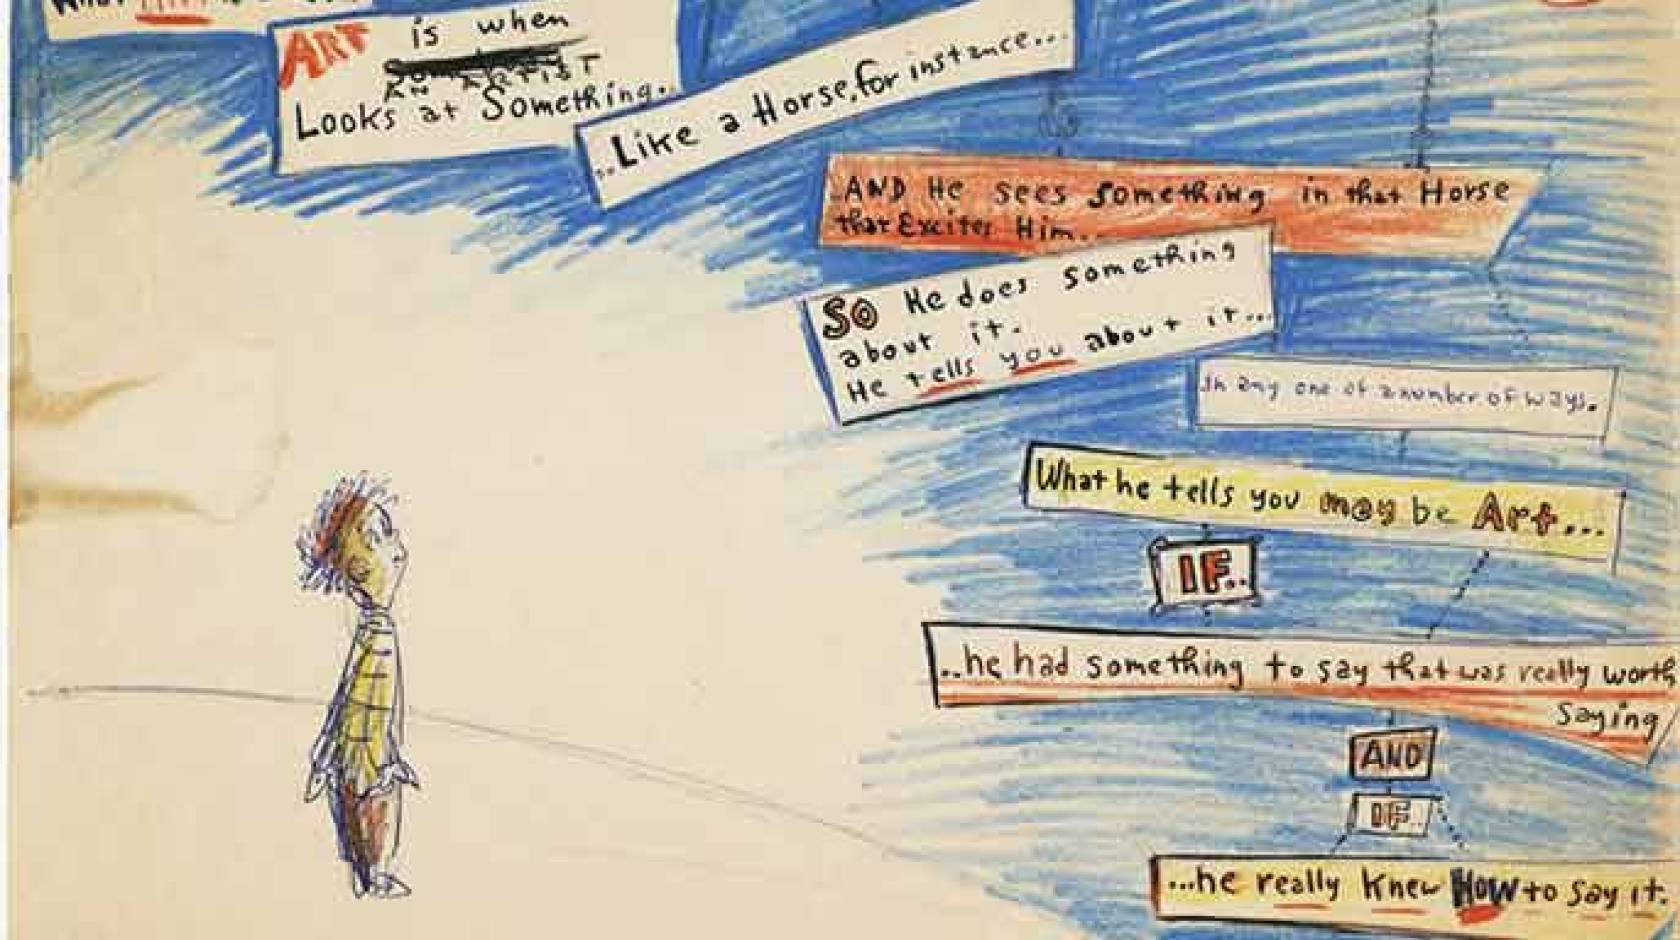 ART is when
An Artist
Looks at Something..
..Like a Horse, for instance...
AND He sees something in that Horse
that Excites Him..
SO He does something
about it.
He tells you about it...
In any one of a number of ways.
What he tells you may be Art...
IF..
..he had something to say that was really worth
Saying
AND
IF..
...he really Knew HOW to say it.